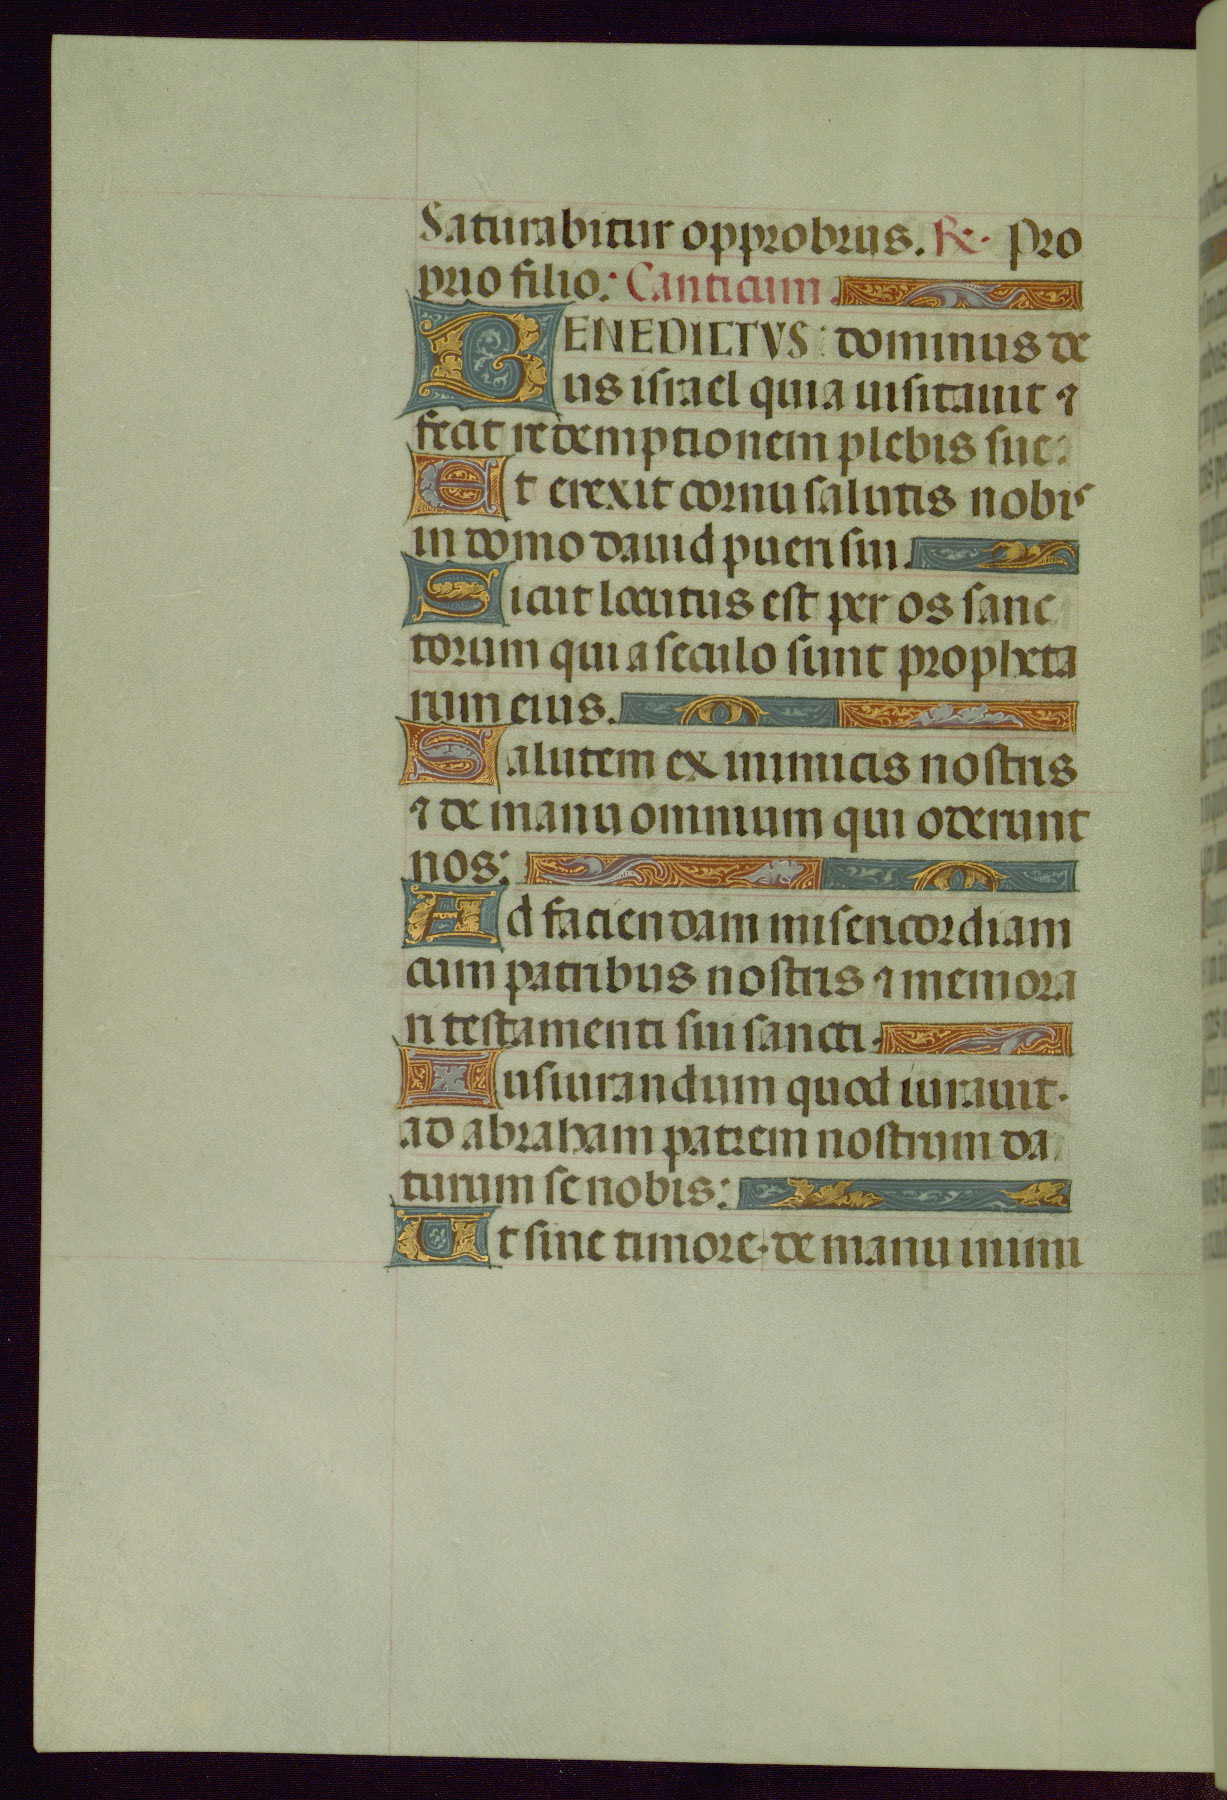 Saturabitur opprobriis. R. Pro
prio filio: Canticum.
BENEDICTVS: dominus de
us israel quia uisitauit ⁊
fecit redemptionem plebis sue:
Et erexit cornu salutis nobis
in domo dauid pueri sui.
Sicut locutus est per os sanc
torum qui a seculo sunt propheta
rum eius.
Salutem ex inimicis nostris
⁊ de manu omnium qui oderunt
nos:
Ad faciendam misericordiam
cum patribus nostris ⁊ memora
ri testamenti sui sancti.
Iusiurandum quod iurauit.
ad abraham patrem nostrum da
turum se nobis:
Ut sine timore. de manu inimi